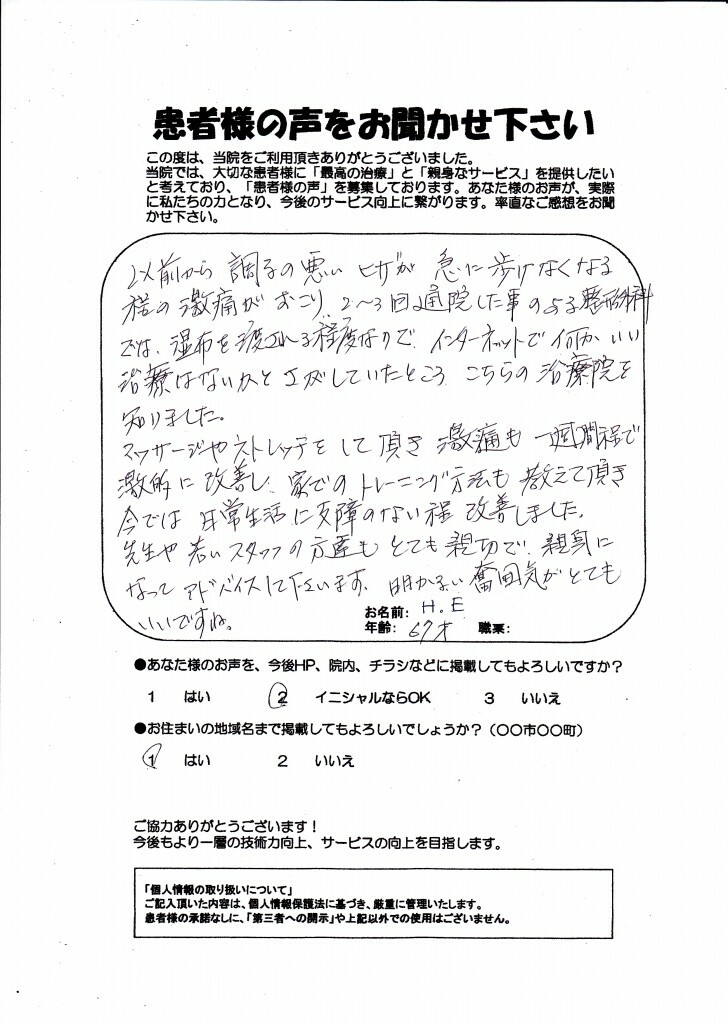 患者様の声をお聞かせ下さい
この度は、当院をご利用頂きありがとうございました。
当院では、大切な患者様に「最高の治療」と「親身なサービス」を提供したい
と考えており、「患者様の声」を募集しております。あなた様のお声が、実際
に私たちの力となり、今後のサービス向上に繋がります。率直なご感想をお聞
かせ下さい。
以前から 調子の悪い ヒザが 急に歩けなくなる
程の激痛がおこり、2〜3回通院した事のある整形外科
では、湿布を渡される程度なので、インターネットで何かいい
治療はないかとさがしていたところ こちらの治療院を
知りました。
マッサージやストレッチをして頂き 激痛も 一週間程で
激的に改善し、家でのトレーニング方法も 教えて頂き
今では 日常生活に支障のない程 改善しました。
先生や若いスタッフの方達も とても親切で、親身に
なって アドバイスして下さいます、明かるい奮囲気がとても
いいですね。
お名前: H.E
年齢: 67才 職業:
●あなた様のお声を、今後HP、院内、チラシなどに掲載してもよろしいですか?
1 はい ② イニシャルならOK 3 いいえ
●お住まいの地域名まで掲載してもよろしいでしょうか?(〇〇市〇〇町)
① はい 2 いいえ
ご協力ありがとうございます!
今後もより一層の技術力向上、サービスの向上を目指します。
「個人情報の取り扱いについて」
ご記入頂いた内容は、個人情報保護法に基づき、厳重に管理いたします。
患者様の承諾なしに、「第三者への開示」や上記以外での使用はございません。